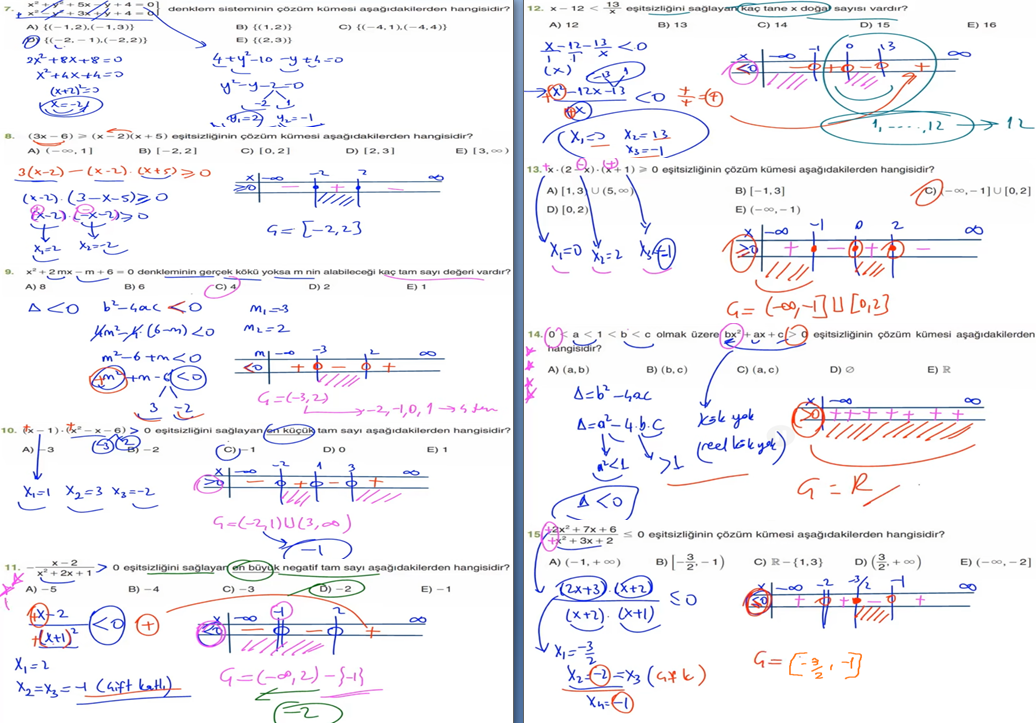 7. x² + y² + 5x - y + 4 = 0 } denklem sisteminin çözüm kümesi aşağıdakilerden hangisidir?
x² - y² + 3x + y + 4 = 0
A) {(-1,2),(-1,3)} B) {(1,2)} C) {(-4,1),(-4,4)}
D) {(-2, -1),(-2,2)} E) {(2,3)}
2x²+8x+8=0
x²+4x+4=0
(x+2)²=0
x=-2
4+y²-10-y+4=0
y²-y-2=0
-2 1
y₁=2 y₂=-1
8. (3x-6) ⩾ (x-2)(x+5) eşitsizliğinin çözüm kümesi aşağıdakilerden hangisidir?
A) (-∞, 1] B) [-2,2] C) [0,2] D) [2,3] E) [3,∞)
3(x-2) - (x-2).(x+5) ≥ 0
(x-2).(3-x-5) ≥ 0
(x-2).(-x-2) ≥ 0
x₁=2 x₂=-2
x -∞ -2 2 ∞
≥0 - + -
G= [-2,2]
9. x² + 2mx - m + 6 = 0 denkleminin gerçek kökü yoksa m nin alabileceği kaç tam sayı değeri vardır?
A) 8 B) 6 C) 4 D) 2 E) 1
Δ<0 b²-4ac <0
4m²-4(6-m)<0
m²-6+m<0
m²+m-6<0
3 -2
m₁=-3
m₂=2
m -∞ -3 2 ∞
<0 + - +
G=(-3,2)
-2,-1,0,1 → 4 tane
10. (x-1).(x²-x-6) > 0 eşitsizliğini sağlayan en küçük tam sayı aşağıdakilerden hangisidir?
-3 2
A) -3 B) -2 C) -1 D) 0 E) 1
x₁=1 x₂=3 x₃=-2
x -∞ -2 1 3 ∞
>0 - + - +
G=(-2,1)∪(3,∞)
-1
11. - x-2 / x²+2x+1 > 0 eşitsizliğini sağlayan en büyük negatif tam sayı aşağıdakilerden hangisidir?
A) -5 B) -4 C) -3 D) -2 E) -1
+x-2 / +(x+1)² <0 +
x₁=2
x₂=x₃=-1 (çift katlı)
x -∞ -1 2 ∞
<0 - - +
G=(-∞,2)-{-1}
-2
12. x-12 < 13/x eşitsizliğini sağlayan kaç tane x doğal sayısı vardır?
A) 12 B) 13 C) 14 D) 15 E) 16
x/1 - 12/1 - 13/x <0
(x)
-13 1
x²-12x-13 / +x <0 +/+ = +
x₁=0 x₂=13
x₃=-1
-∞ -1 0 13 ∞
<0 - + - +
1, ....., 12 → 12
13. x.(2-x).(x+1) ⩾ 0 eşitsizliğinin çözüm kümesi aşağıdakilerden hangisidir?
A) [1,3) ∪ (5,∞) B) [-1,3] C) (-∞,-1] ∪ [0,2]
D) [0,2) E) (-∞,-1)
x₁=0 x₂=2 x₃=-1
x -∞ -1 0 2 ∞
≥0 + - + -
G= (-∞,-1] ∪ [0,2]
14. 0 < a < 1 < b < c olmak üzere bx² + ax + c > 0 eşitsizliğinin çözüm kümesi aşağıdakilerden
hangisidir?
A) (a,b) B) (b,c) C) (a,c) D) ∅ E) ℝ
Δ=b²-4ac
Δ=a²-4.b.c
a²<1 >1
Δ<0
kök yok
(reel kök yok)
x -∞ ∞
>0 + + + + + + +
G = R
15. +2x²+7x+6 / +x²+3x+2 ≤ 0 eşitsizliğinin çözüm kümesi aşağıdakilerden hangisidir?
A) (-1,+∞) B) [-3/2,-1) C) ℝ-{1,3} D) (3/2,+∞) E) (-∞,-2]
(2x+3).(x+2) / (x+2).(x+1) ≤0
x₁=-3/2
x₂=-2=x₃ (çift k)
x₄=-1
x -∞ -2 -3/2 -1 ∞
≤0 + + - +
G= [-3/2, -1]